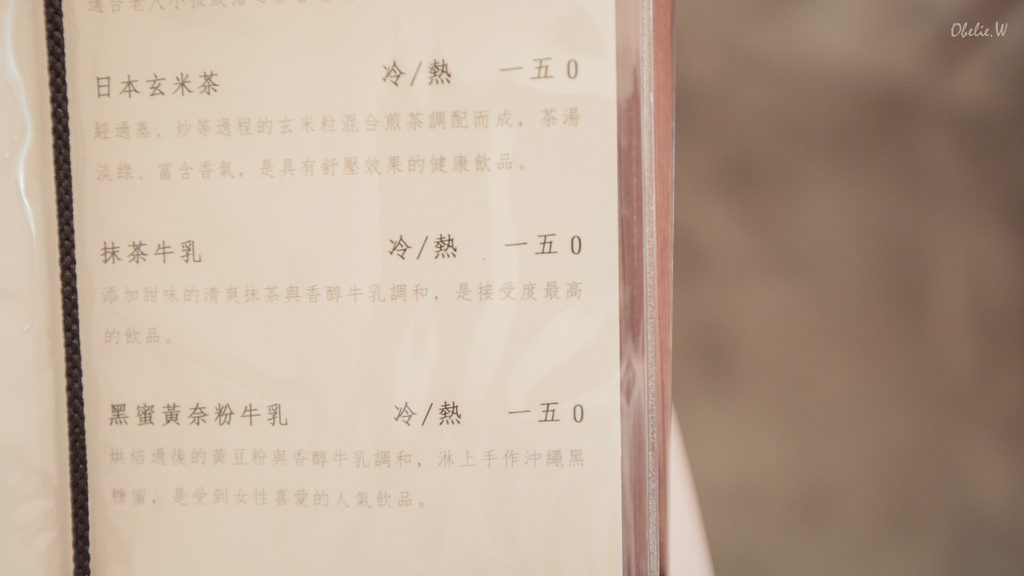 適合老人小孩
Obelie.W
日本玄米茶 冷/熱 一五0
經過蒸、炒等過程的玄米粒混合煎茶調配而成，茶湯
淡綠、富含香氣，是具有舒壓效果的健康飲品。
抹茶牛乳 冷/熱 一五0
添加甜味的清爽抹茶與香醇牛乳調和，是接受度最高
的飲品。
黑蜜黃奈粉牛乳 冷/熱 一五0
烘焙過後的黃豆粉與香醇牛乳調和，淋上手作沖繩黑
糖蜜，是受到女性喜愛的人氣飲品。